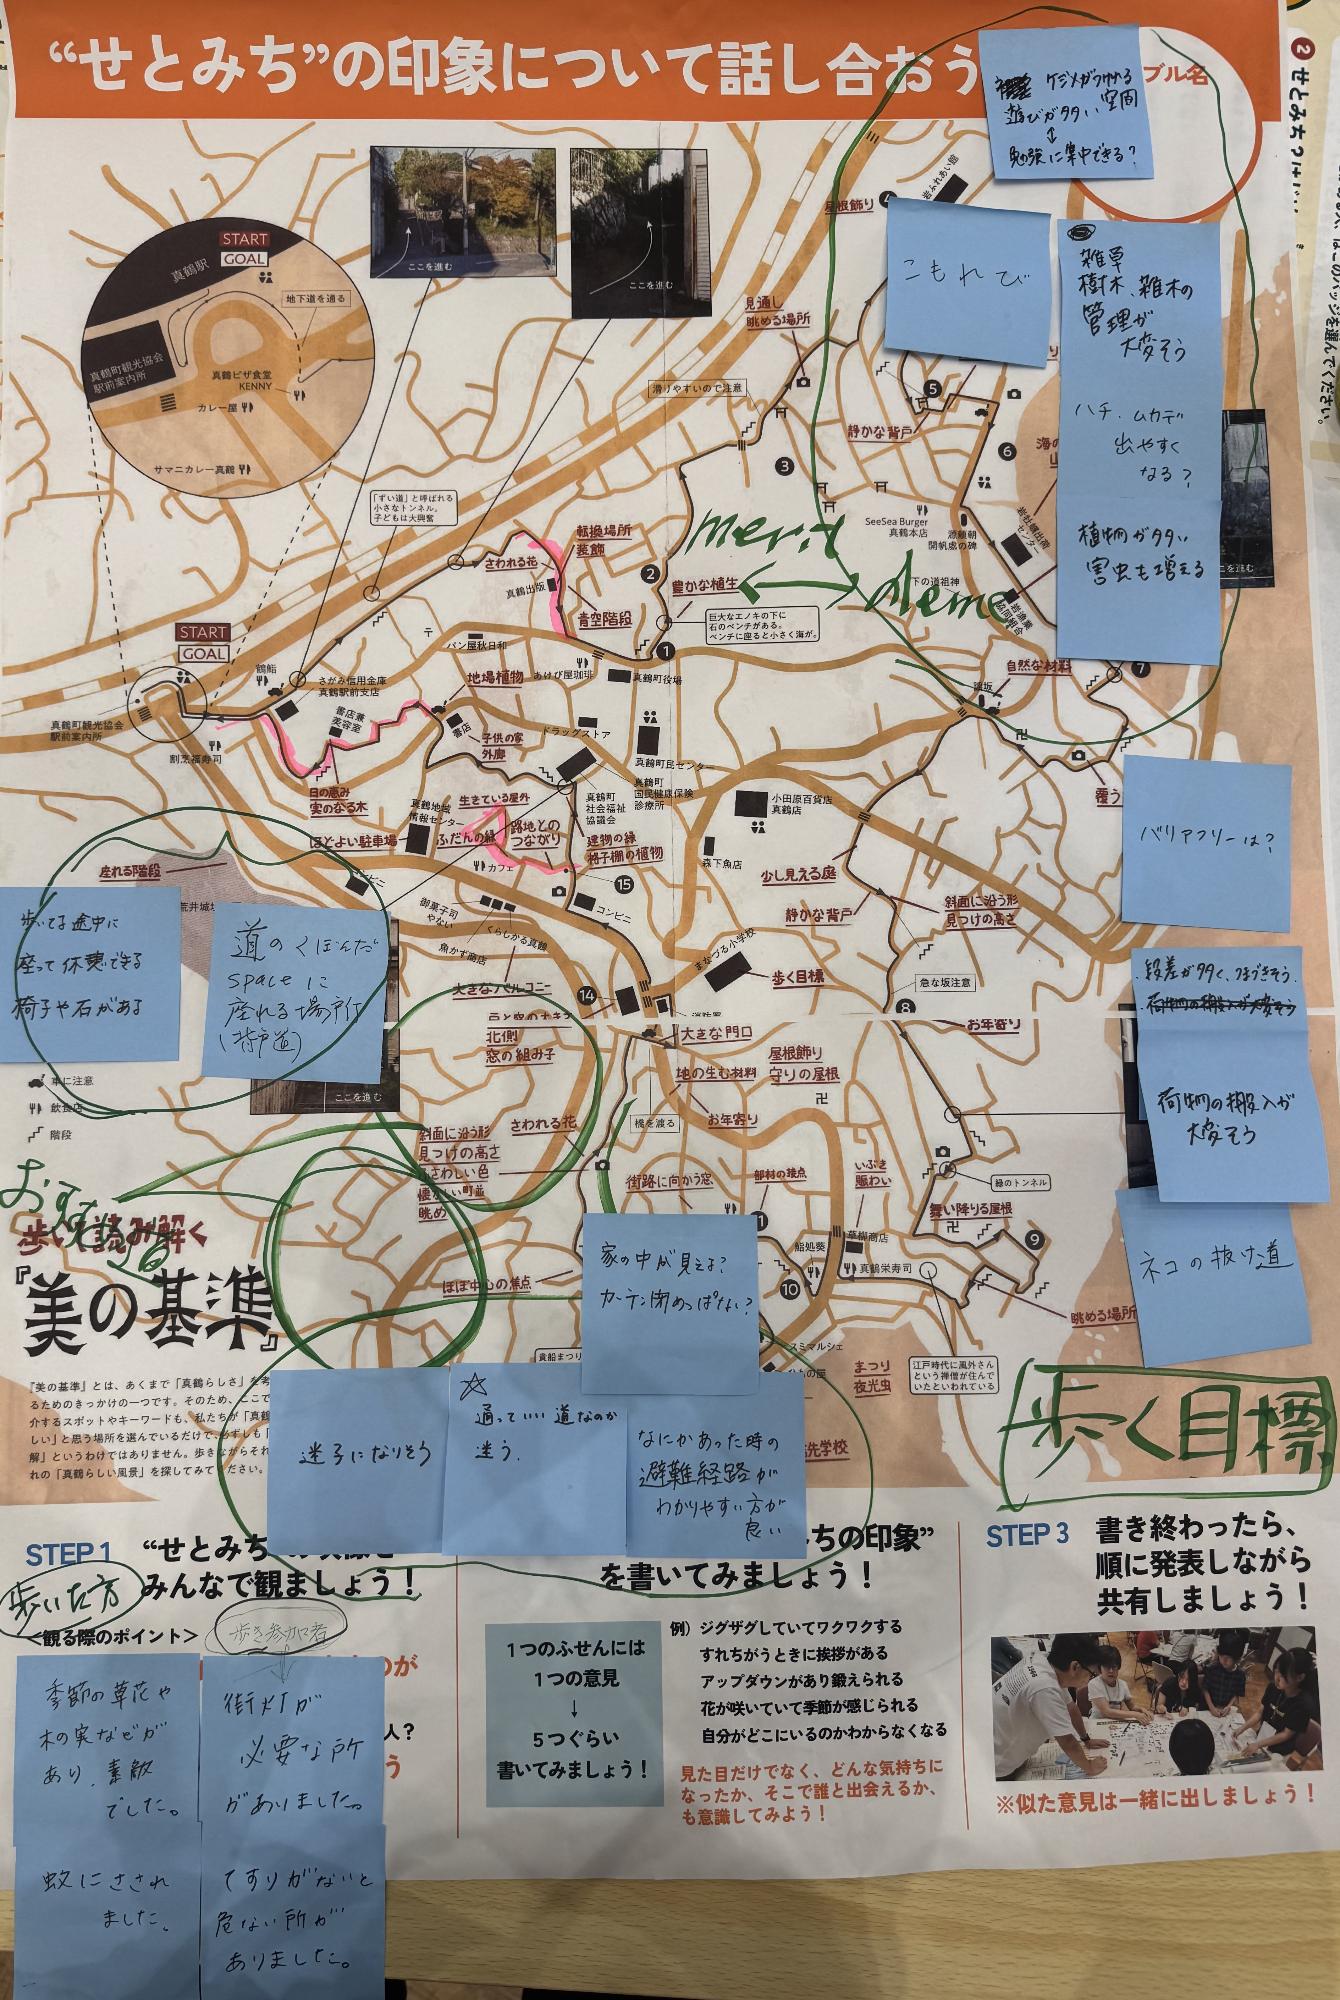 “せとみち”の印象について話し合おう
ブル名
ケジメがつけれる
遊びがタタい空間
↕
勉強に集中できる?
こもれび
雑草
樹木、雑木の
管理が
大変そう
ハチ、ムカデ
出やすく
なる?
植物がタタい
害虫も増える
START
GOAL
真鶴駅
地下道を通る
真鶴町観光協会
駅前案内所
真鶴ピザ食堂
KENNY
カレー屋
サマニカレー真鶴
ここを進む
ここを進む
屋根飾り
見通し
眺める場所
滑りやすいので注意
静かな背戸
3
5
6
「ずい道」と呼ばれる
小さなトンネル。
子どもは大興奮
SeeSea Burger
真鶴本店
源頼朝
開帆処の碑
下の道祖神
merit
deme
転換場所
装飾
さわれる花
真鶴出版
青空階段
2
豊かな植生
巨大なエノキの下に
石のベンチがある。
ベンチに座ると小さく海が。
1
7
自然な材料
START
GOAL
鶴鮨
さがみ信用金庫
真鶴駅前支店
パン屋秋日和
あけび屋珈琲
真鶴町役場
地場植物
真鶴町観光協会
駅前案内所
割烹福寿司
書店兼
美容室
書店
子供の家
外廊
ドラッグストア
真鶴町民センター
真鶴町
国民健康保険
診療所
真鶴町
社会福祉
協議会
小田原百貨店
真鶴店
日の恵み
実のなる木
真鶴地域
情報センター
生きている屋外
ほどよい駐車場
ふだんの緑
路地との
つながり
建物の縁
格子棚の植物
カフェ
15
コンビニ
コンビニ
森下魚店
少し見える庭
静かな背戸
斜面に沿う形
見つけの高さ
覆う
バリアフリーは?
座れる階段
歩いてる途中に
座って休憩できる
椅子や石がある
道のくぼんだ
spaceに
座れる場所
(背戸道)
御菓子司
やない
くらしかる真鶴
魚かず商店
まなづる小学校
歩く目標
急な坂注意
大きなバルコニー
14
8
段差が多く、つまづきそう。
荷物の搬入が
大変そう
北側
窓の組み子
大きな門口
お年寄り
地の生む材料
屋根飾り
守りの屋根
お年寄り
ここを進む
車に注意
飲食店
階段
さわれる花
橋を渡る
斜面に沿う形
見つけの高さ
ふさわしい色
懐かしい町並
眺め
街路に向かう窓
部材の接点
いぶき
賑わい
緑のトンネル
舞い降りる屋根
9
ネコの抜け道
歩いて読み解く
『美の基準』
ほぼ中心の焦点
家の中が見える?
カーテン閉めっぱなし?
鮨処葵
草柳商店
真鶴栄寿司
10
眺める場所
まつり
夜光虫
江戸時代に風外さん
という禅僧が住んで
いたといわれている
歩く目標
迷子になりそう
☆
通っていい道なのか
迷う.
なにかあった時の
避難経路が
わかりやすい方が
良い
STEP 1
みんなで観ましょう!
<観る際のポイント>
歩いた方
歩き参加者
季節の草花や
木の実などが
あり、素敵
でした。
街灯が
必要な所
がありました。
蚊にさされ
ました。
てすりがないと
危ない所が
ありました。
ちの印象”
を書いてみましょう!
1つのふせんには
1つの意見
↓
5つぐらい
書いてみましょう!
例) ジグザグしていてワクワクする
すれちがうときに挨拶がある
アップダウンがあり鍛えられる
花が咲いていて季節が感じられる
自分がどこにいるのかわからなくなる
見た目だけでなく、どんな気持ちに
なったか、そこで誰と出会えるか、
も意識してみよう!
STEP 3
書き終わったら、
順に発表しながら
共有しましょう!
※似た意見は一緒に出しましょう!